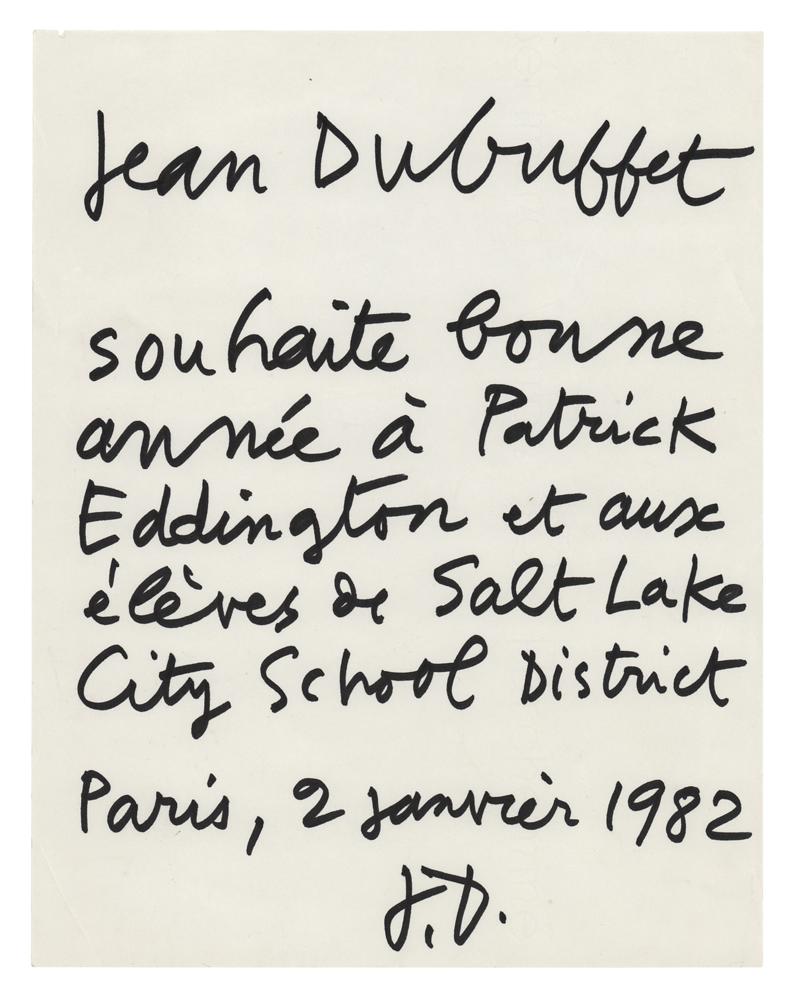 Jean Dubuffet
souhaite bonne
année à Patrick
Eddington et aux
élèves de Salt Lake
City School District
Paris, 2 janvier 1982
J.D.